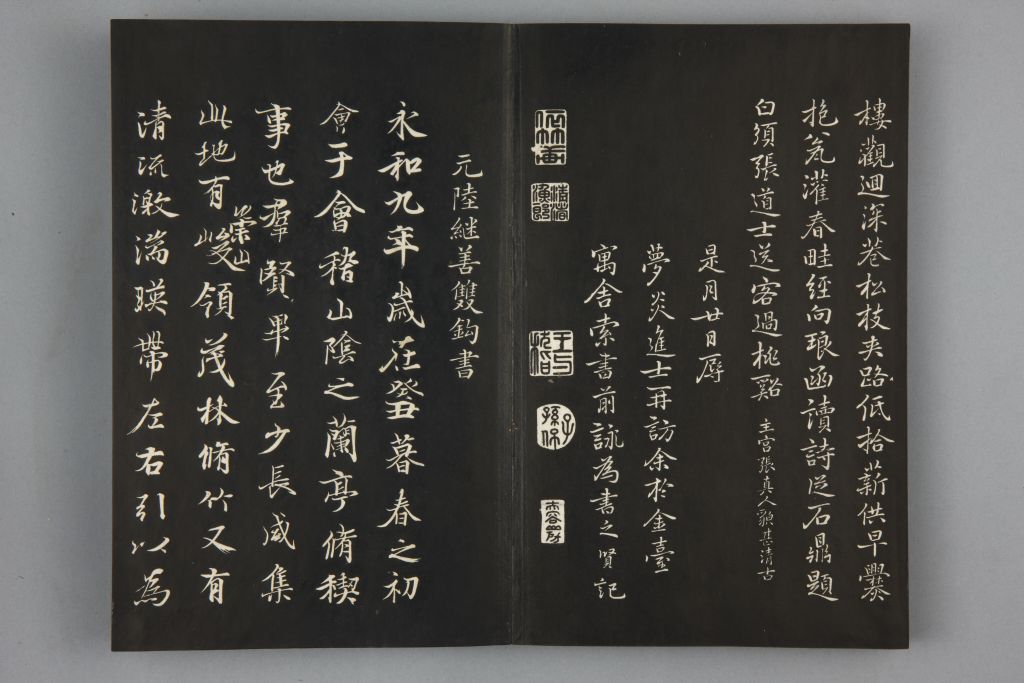 樓觀迴深巷松枝夾路低拾薪供早爨
抱瓮灌春畦經向琅函讀詩從石鼎題
白須張道士送客過桃谿 主宮張真人顏甚清古
是月廿日辱
夢炎進士再訪余於金臺
寓舍索書前詠為書之賢記
元陸継善雙鈎書
永和九年歲在癸丑暮春之初
會于會稽山陰之蘭亭脩稧
事也羣賢畢至少長咸集
此地有崇山峻領茂林脩竹又有
清流激湍暎帶左右引以為